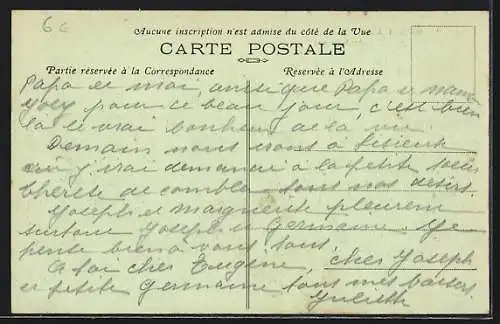 6 6
Aucune inscription n'est admise du côté de la Vue
CARTE POSTALE
Partie réservée à la Correspondance
Réservée à l'Adresse
Papa et moi, ainsi que Papa et mama
pour ce beau jour, c'est bien
là le vrai bonheur de la vie
Demain nous irons à Lisieux
j'irai demander à la petite soeur
therese de combler tous nos désirs.
Joseph et Marguerite pleurent
surtout Joseph et Germaine. Je
pense bien à vous tous, cher Joseph
A toi cher Eugène,
et petite Germaine tous mes baisers
Juliette